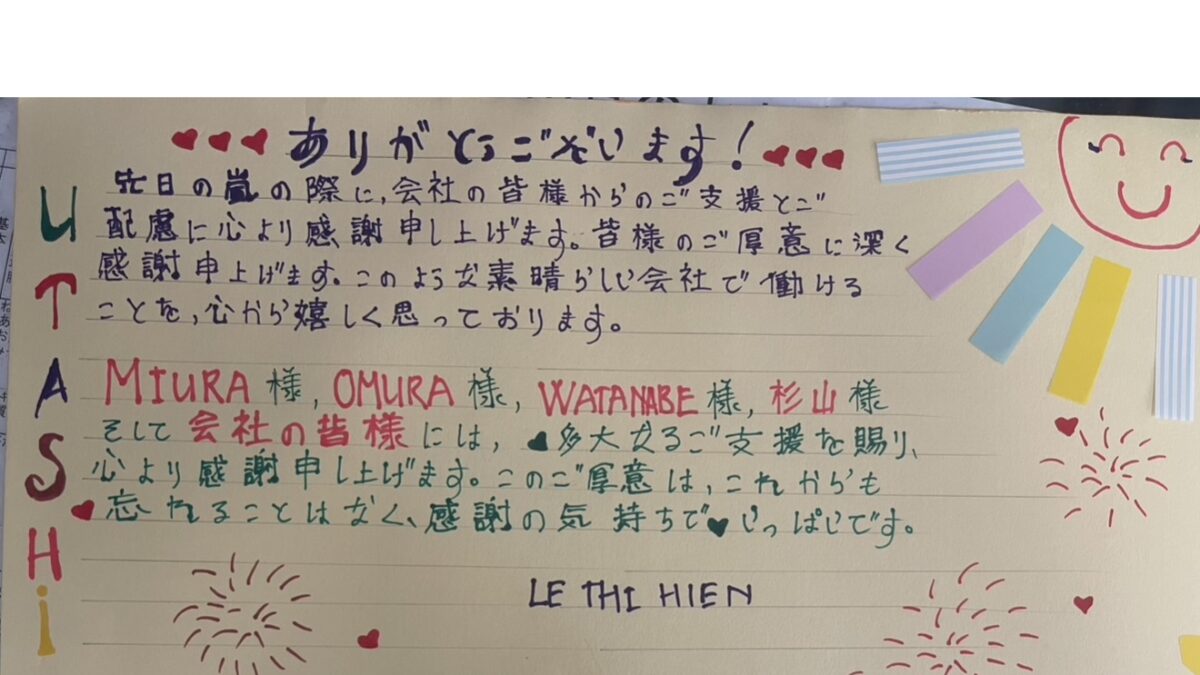 ありがとうございます!
先日の嵐の際に,会社の皆様からのご支援とご
配慮に心より感謝申し上げます。皆様のご厚意に深く
感謝申上げます。このような素晴らしい会社で働ける
ことを,心から嬉しく思っております。
MIURA様, OMURA様, WATANABE様, 杉山様
そして会社の皆様には,多大なるご支援を賜り、
心より感謝申し上げます。このご厚意は,これからも
忘れることはなく、感謝の気持ちでいっぱいです。
LE THI HIEN
UTASHi